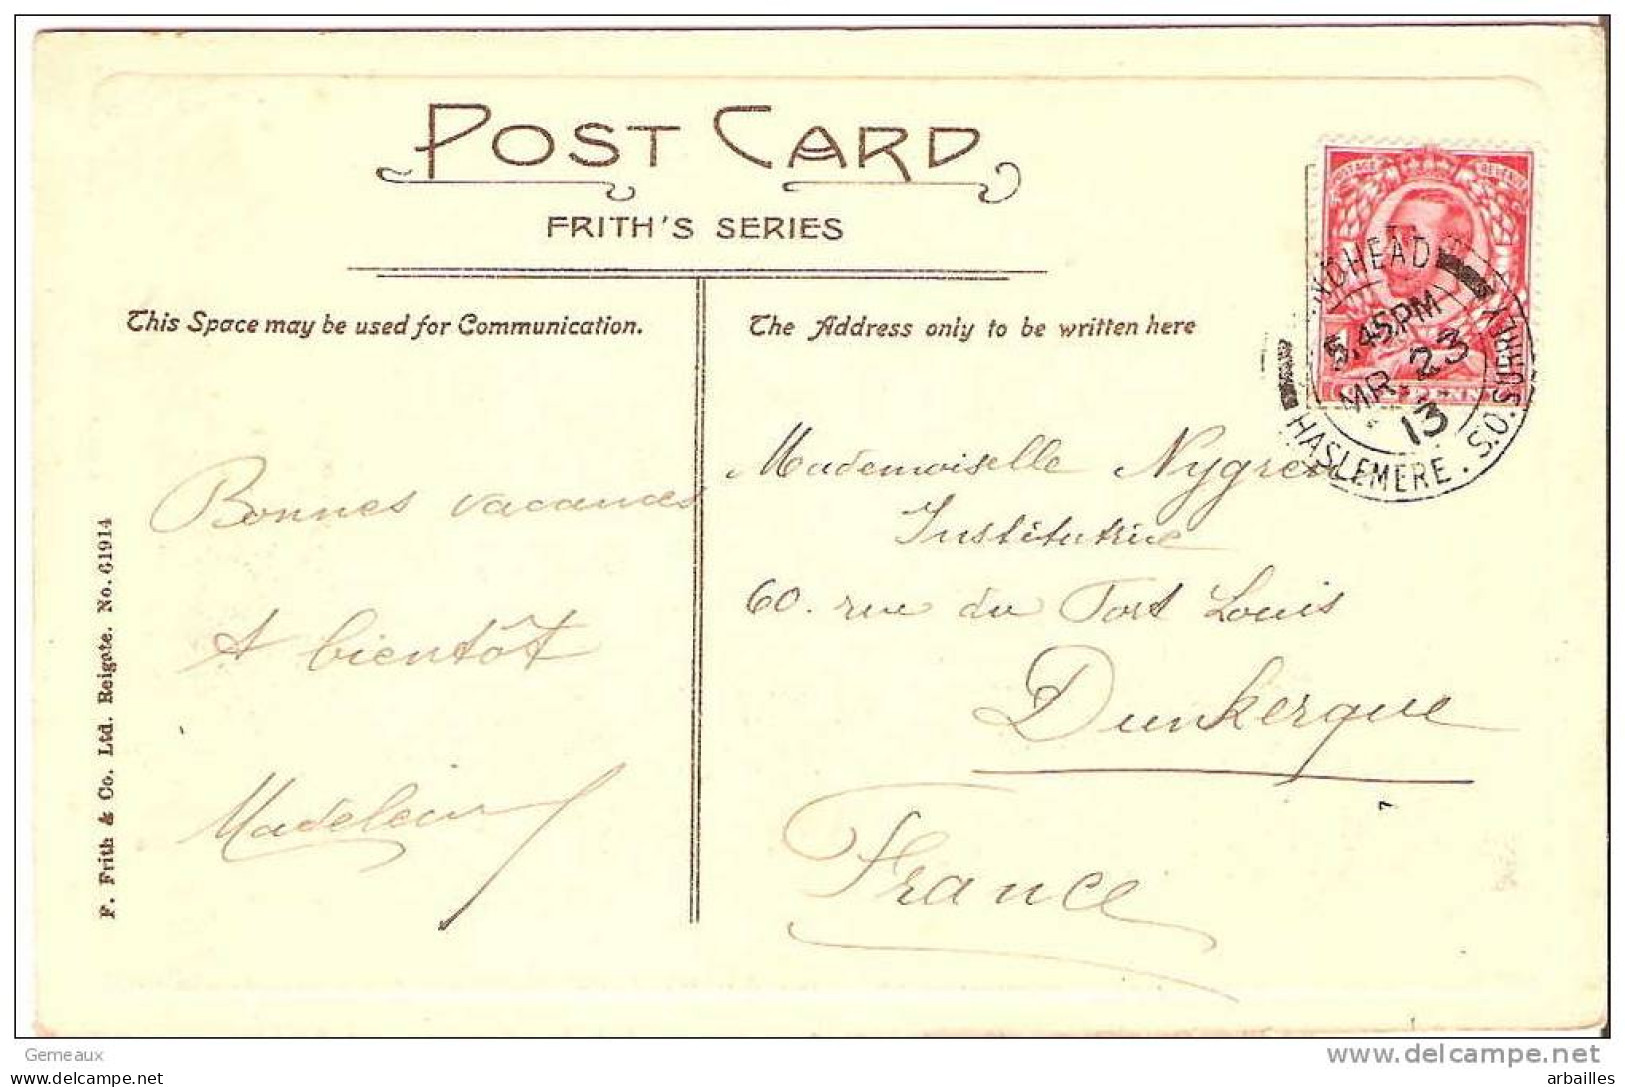 POST CARD
FRITH'S SERIES
This Space may be used for Communication.
The Address only to be written here
POSTAGE REVENUE
NDHEAD
5.45PM
MR. 23
13
HASLEMERE. S.O. SURREY
PENNY
Bonnes vacances
A bientôt
Madeleine
Mademoiselle Nygren
Institutrice
60. rue du Fort Louis
Dunkerque
France
F. Frith & Co. Ltd. Reigate. No. 61914
Gemeaux
www.delcampe.net
arbailles